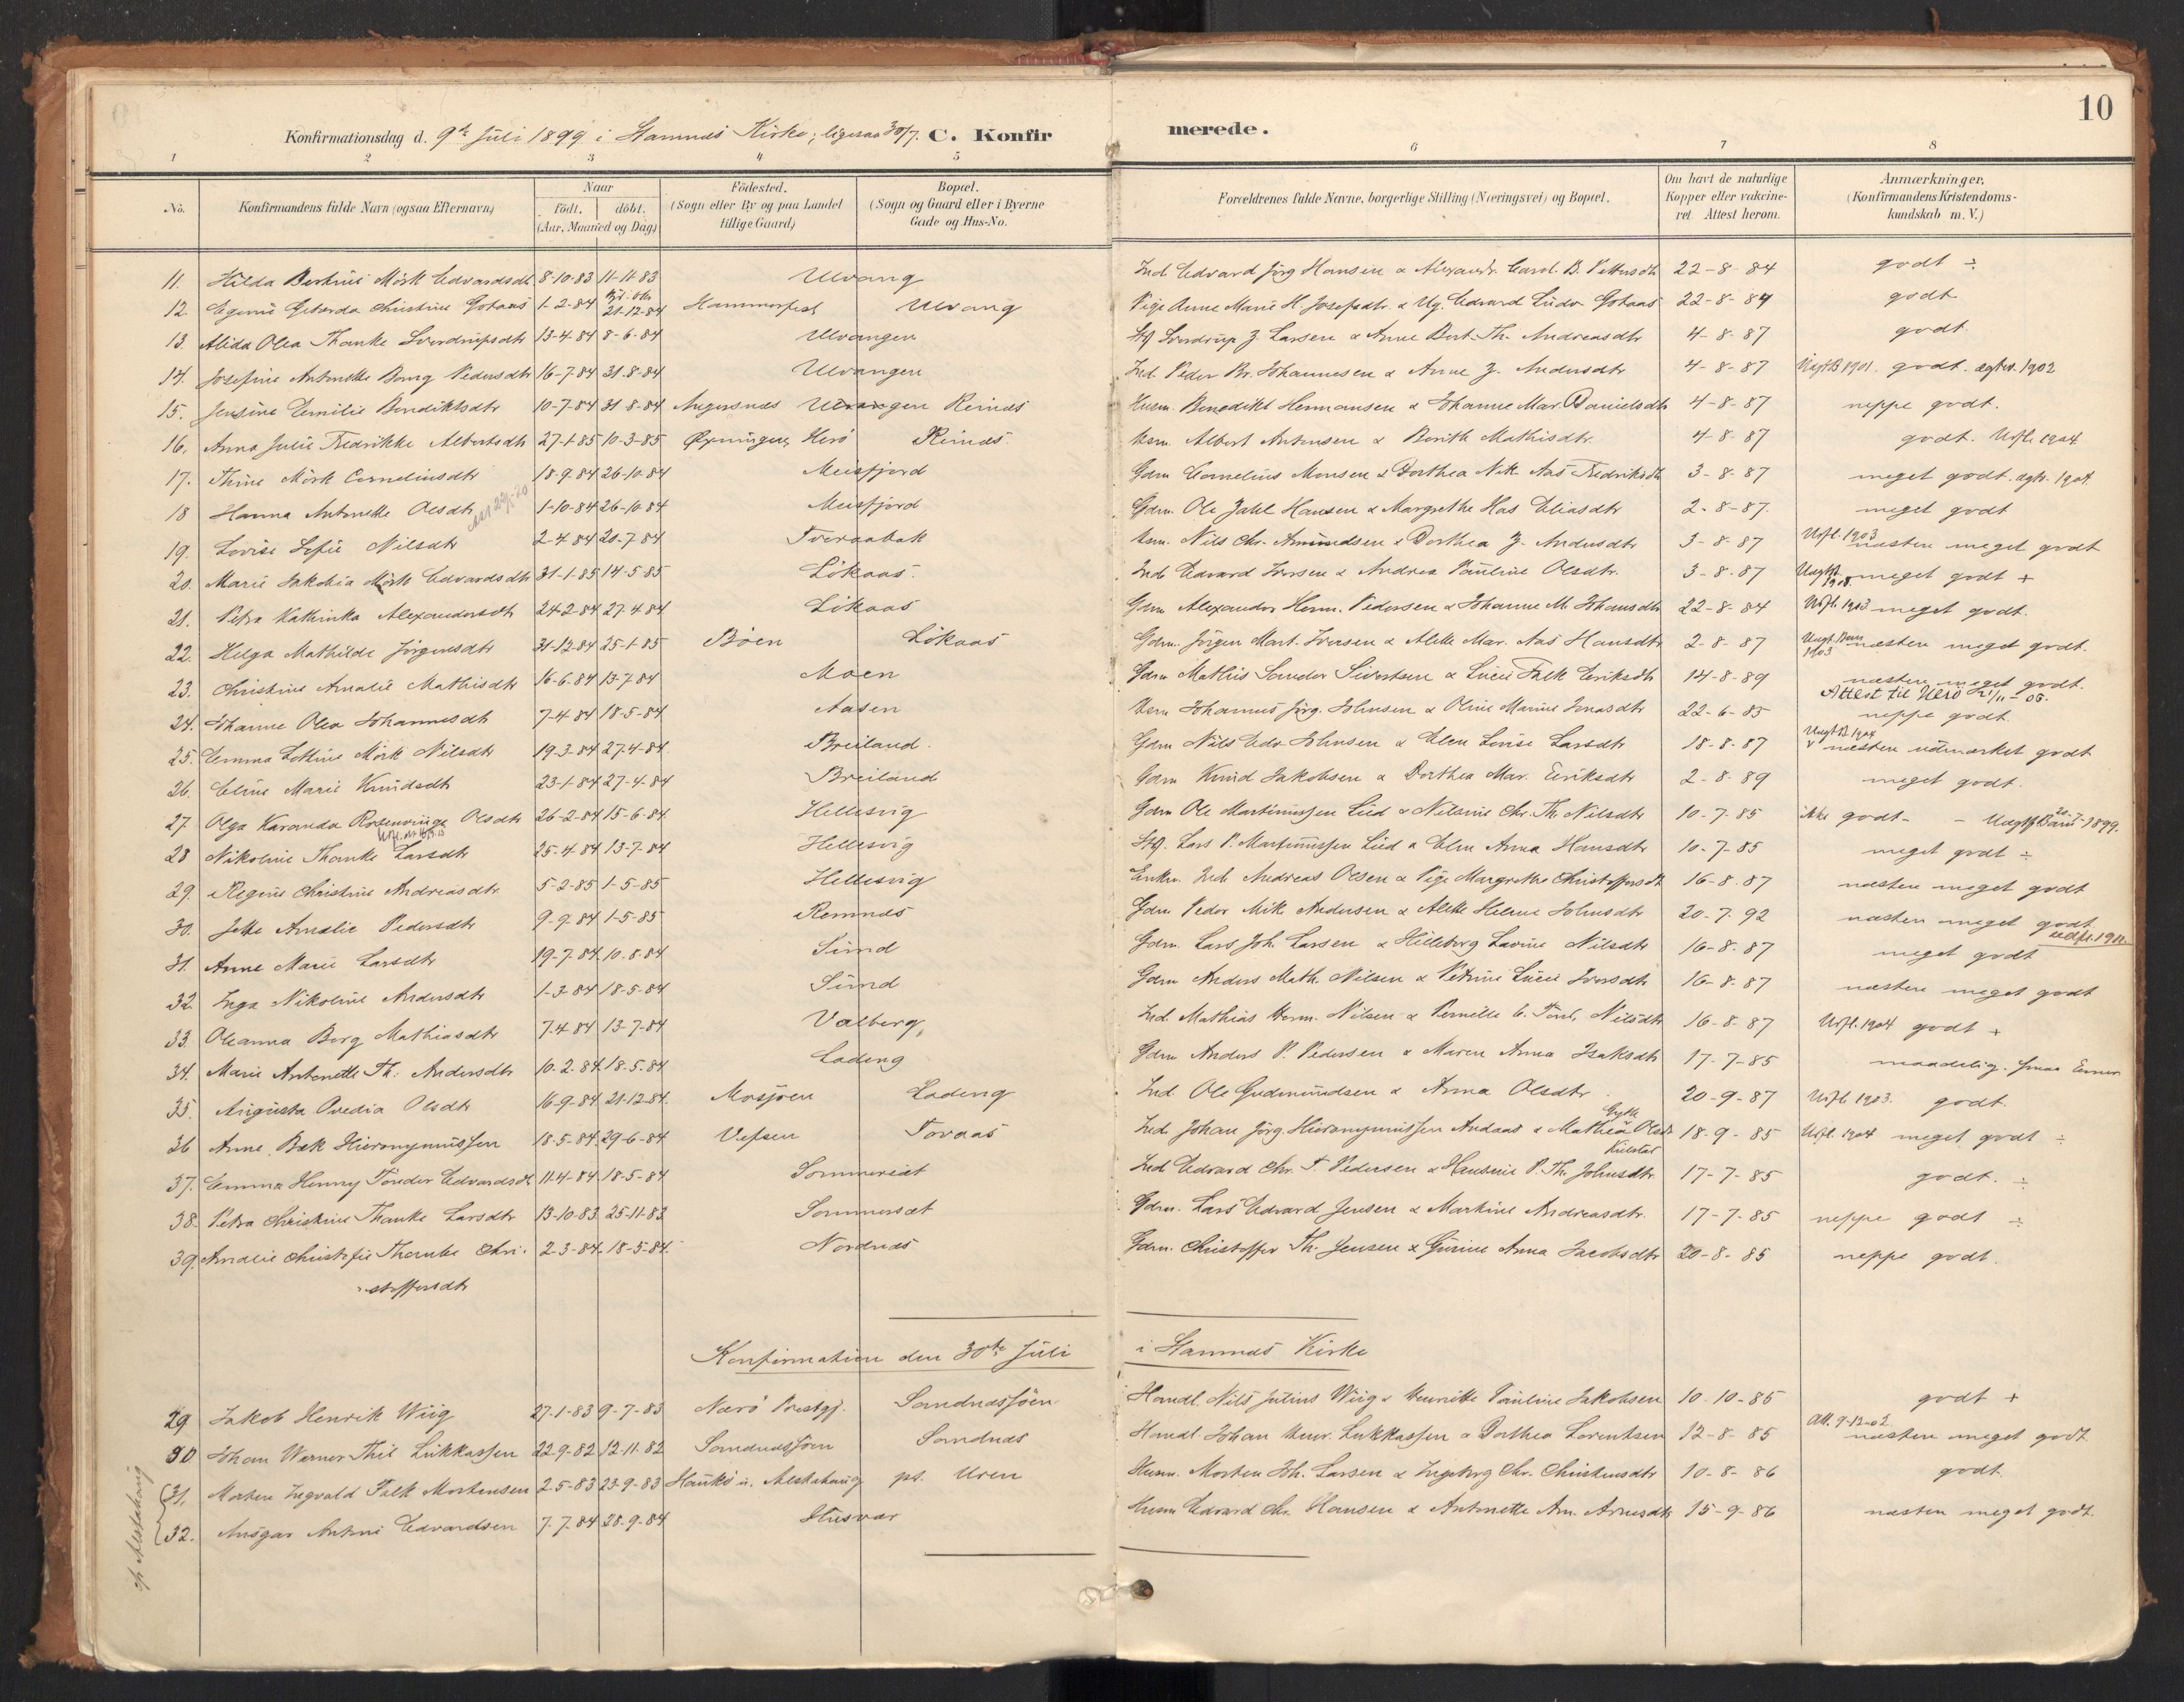 10
Konfirmationsdag d. 9de Juli 1899 i Stamnæs Kirke; ligesaa 30/7. C. Konfirmerede.
1 2 3 4 5 6 7 8
No. Konfirmandens fulde Navn (ogsaa Efternavn) Naar født, døbt. (Aar, Maaned og Dag) Födested. (Sogn eller By og paa Landet tillige Gaard) Bopæl. (Sogn og Gaard eller i Byerne Gade og Hus-No. Forældrenes fulde Navne, borgerlige Stilling (Næringsvei) og Bopæl. Om havt de naturlige Kopper eller vakcineret. Attest herom. Anmærkninger. (Konfirmandens Kristendomskundskab m. V.)
11. Hilda Bertine Mörk Edvardsdt 8-10-83 11-11-83 Ulvang Ind. Edvard Jörg Hansen & Alexandr. Carol. B. Pettersdt 22-8-84 godt ÷
12. Egine Getarda Christine Gotaas 1-2-84 21-12-84 Hammerfest Ulvang Pige Anne Marie H. Josefsdtr. & Ug. Edvard Ludv Gotaas 22-8-84 godt
13. Alida Olea Thanke Sverdrupsdtr 13-4-84 8-6-84 Ulvangen Stg Sverdrup J. Larsen & Anne Bert. Th. Andreasdtr 4-8-87 godt.
14. Josefine Antonette Borg Pedersdtr 16-7-84 31-8-84 Ulvangen Ind. Peder Br. Johannesen & Anne J. Andersdtr 4-8-87 godt. ægtev. 1902
15. Jensine Emilie Bendiktsdtr 10-7-84 31-8-84 Angersnæs Ulvangen Reinæs Husm. Benedikt Hermansen & Johanne Mar. Danielsdtr 4-8-87 neppe godt.
16. Anna Julie Fredrikke Albertsdtr 27-1-85 10-3-85 Øxningen, Herö Reinæs Husm. Albert Antonsen & Berith Mathisdtr. 4-8-87 godt. Udfl. 1904
17. Thine Mörk Corneliusdtr 18-9-84 26-10-84 Meisfjord Gdm Cornelius Monsen & Dorthea Nik. Aas Fredriksdtr 3-8-87 meget godt. ægtv. 1904.
18 Hanna Antonette Olsdtr 1-10-84 26-10-84 Meisfjord Gdm. Ole Zahl Hansen & Margrethe Has Eliasdtr 2-8-87. meget godt
19. Lovise Sofie Nilsdtr 2-4-84 20-7-84 Tveraabak Husm. Nils Chr. Amundsen & Dorthea J. Andersdtr 3-8-87 Udfl. 1903 næsten meget godt
20. Marie Jakobia Mörk Edvardsdtr 31-1-85 14-5-85 Lökaas. Ind. Edvard Iversen & Andrea Pauline Olsdtr. 3-8-87 meget godt +
21. Petra Kathinka Alexandersdtr 24-2-84 27-4-84 Lökaas Gdm Alexander Herm. Pedersen & Johanne M. Johansdtr 22-8-84 Udfl. 1903 meget godt.
22. Helga Mathilde Jörgensdtr 31-12-84 25-1-85 Böen Lökaas Gdm. Jörgen Mart. Iversen & Alette Mar. Aas Hansdtr 2-8-87 Uægt Barn 1903 næsten meget godt.
23. Christine Amalie Mathisdtr 16-6-84 13-7-84 Moen Gdm Mathis Sander Sivertsen & Lucie Falk Eriksdtr 14-8-89 næsten meget godt.
24. Johanne Olea Johannesdtr 7-4-84 18-5-84 Aasen Husm Johannes Jörg. Johnsen & Oline Marine Jonasdtr 22-6-85 Attest til Herö 21/11-05. neppe godt.
25. Emma Lottine Mörk Nilsdtr 19-3-84 27-4-84. Breiland. Gdm Nils Edv. Johnsen & Elen Lovise Larsdtr 18-8-87 Uægt B 1904 næsten udmærket godt
26. Eline Marie Knudsdtr 23-1-84 27-4-84 Breiland Gdm Knud Jakobsen & Dorthea Mar. Eriksdtr 2-8-89 meget godt.
27 Olga Karanda Rosenvinge Olsdtr 26-2-84 15-6-84. Hellesvig Gdm Ole Martinussen Lied & Nilsine Chr. Th. Nilsdtr 10-7-85 ikke godt - - Uægt Barn 20-7-1899.
28 Nikoline Thanke Larsdtr 25-4-84 13-7-84 Hellesvig Stg. Lars P. Martinussen Lied & Elen Anna Hansdtr 10-7-85 meget godt ÷
29. Regine Christine Andreasdtr. 5-2-85 1-5-85 Hellesvig Enkm. Ind. Andreas Olsen & Pige Margrethe Christoffersdt 16-8-87 næsten meget godt
30. Jette Amalie Pedersdtr 9-9-84 1-5-85 Remnæs Gdm Peder Mik Andersen & Alette Helene Johnsdtr 20-7-92 næsten meget godt. udfl. 1911
31. Anne Marie Larsdtr 19-7-84 10-8-84 Sund Gdm. Lars Joh. Larsen & Hilleborg Lavine Nilsdtr 16-8-87 meget godt
32. Inga Nikoline Andersdtr 1-3-84 18-5-84 Sund Gdm Anders Math. Nilsen & Petrine Lucie Iversdtr 16-8-87 næsten meget godt
33. Oleanna Borg Mathiasdtr 7-4-84 13-7-84 Valberg, Ind. Mathias Herm. Nilsen & Pernille C. Nilsdtr 16-8-87 Udfl. 1904 godt +
34. Marie Antonette Th. Andersdtr 10-2-84. 18-5-84 Lading Gdm Anders P. Pedersen & Maren Anna Isaksdtr 17-7-85 maadelig. smaa Evner
35. Augusta Ovedia Olsdtr 16-9-84 21-12-84. Mosjöen Lading Ind. Ole Gudmundsen & Anna Olsdtr 20-9-87 Udfl. 1903. godt.
36 Anne Bak Hieronymussen 18-5-84. 29-6-84 Vefsen Toraas Ind. Johan Jörg. Hieronymussen Andaas & Mathea Olsdtr 18-9-85 Udfl. 1904 meget godt ÷
37. Emma Henny Tönder Edvardsdt 11-4-84 18-5-84 Sommersæt Ind. Edvard Chr. T Pedersen & Hansine P. Th. Johnsdtr. 17-7-85 godt. ÷
38. Petra Christine Thanke Larsdtr 13-10-83 25-11-83 Sommersæt Gdm. Lars Edvard Jensen & Martine Andreasdtr. 17-7-85 neppe godt ÷
39. Amalie Christofie Thanke Christoffersdtr 2-3-84. 18-5-84. Nordnæs Gdm. Christoffer Th. Jensen & Gurine Anna Jacobsdtr 20-8-85 neppe godt.
Konfirmation den 30te Juli i Stamnæs Kirke
29 Jakob Henrik Wiig 27-1-83 9-7-83 Nærö Prestgj. Sandnessjöen Handl. Nils Julius Wiig & Henriette Pauline Jakobsen 10-10-85 godt +
30 Johan Werner Thiis Lukkassen 22-9-82 12-11-82 Sandnessjöen Sandnæs Handl. Johan Henr. Lukkassen & Dorthea Lorentsen 12-8-85 Att. 9-12-02. næsten meget godt
31. Morten Ingvald Falk Mortensen 2-5-83 23-9-83 Haukö i. Alstahaug pt. Uren Husm. Morten Joh. Larsen & Ingeborg Chr. Christensdtr 10-8-86 godt.
32. Ansgar Antoni Edvardsen 7-7-84 28-9-84 Husvær Husm Edvard Chr. Hansen & Antonette Am. Arnesdtr 15-9-86 næsten meget godt.
Alstahaug